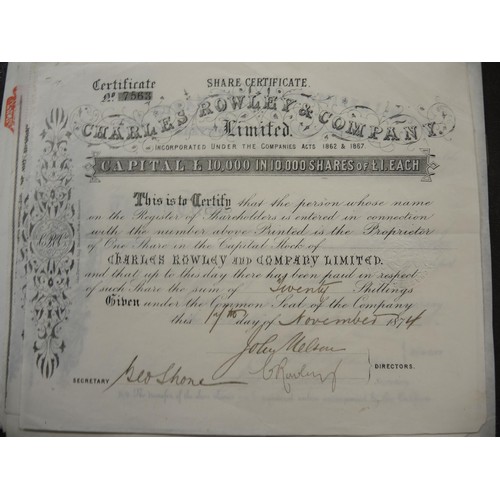 Certificate
No 7563
SHARE CERTIFICATE.
CHARLES ROWLEY & COMPANY
Limited.
INCORPORATED UNDER THE COMPANIES ACTS 1862 & 1867.
CAPITAL £10,000 IN 10,000 SHARES OF £1. EACH
This is to Certify that the person whose name
on the Register of Shareholders is entered in connection
with the number above Printed is the Proprietor
of One Share in the Capital Stock of
CHARLES ROWLEY AND COMPANY LIMITED.
and that up to this day there has been paid on respect
of such Share the sum of Twenty Shillings
Given under the Common Seal of the Company
this 17th day of November 1874
John Nelson
C Rowley
DIRECTORS.
SECRETARY Geo Shone